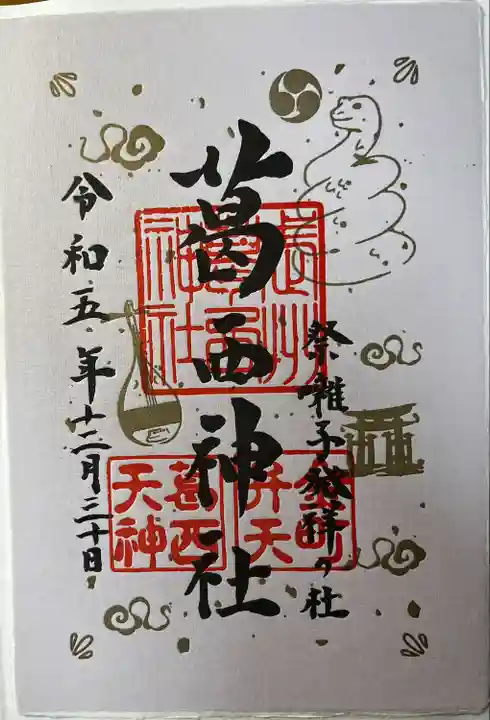 祭囃子発祥の社
葛西神社
令和五年十二月三十日
葛西
天神
金町
弁天